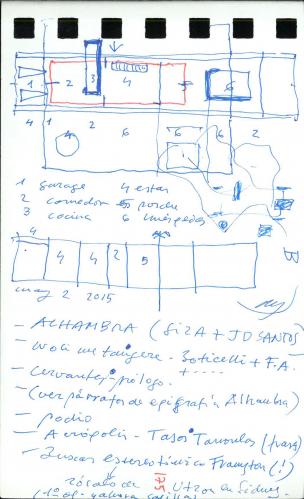 1 2 3 4 5 6
4 1 2 6 6 2
4
1 garage 4 estar
2 comedor 5 porche
3 cocina 6 huéspedes
4
4 4 2 5
B
may 2 2015
- ALHAMBRA (SIZA + JD SANTOS)
- Noli me tangere - Boticelli + F.A.
+ ....
- Cervantes, prólogo.
(ver párrafos de epigrafía Alhambra)
- podio
- Acrópolis - Tasos Tanoulas
- Buscar estereotómico Frampton (!)
zócalo de Utzon en Sidney